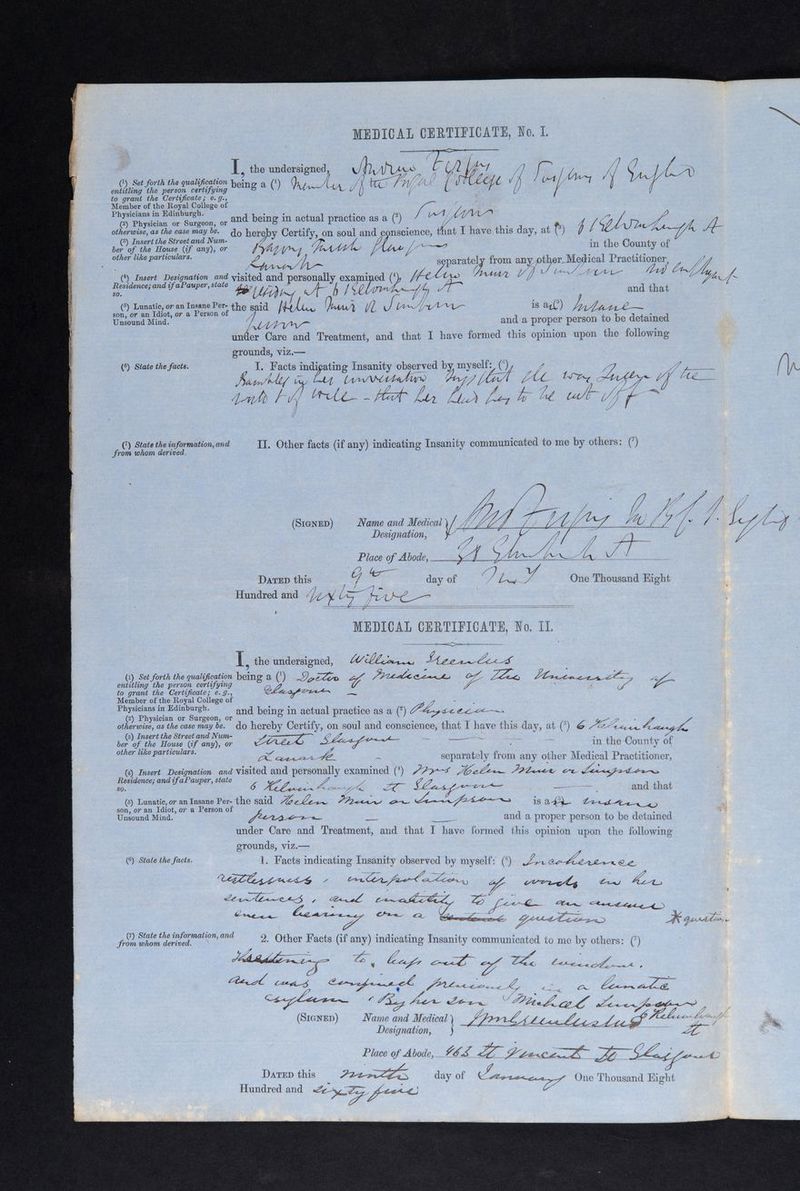 MEDICAL CERTIFICATE, No. I.
I, the undersigned, Andrew
(1) Set forth the qualification entitling the person certifying to grant the Certificate; e. g., Member of the Royal College of Physicians in Edinburgh.
being a (1) Member of the Royal College of Surgeons of England
(2) Physician or Surgeon, or otherwise, as the case may be.
and being in actual practice as a (2) Surgeon
(3) Insert the Street and Number of the House (if any), or other like particulars.
do hereby Certify, on soul and conscience, that I have this day, at (3) 6 Kelvinhaugh St
Glasgow in the County of
Lanark separately from any other Medical Practitioner,
(4) Insert Designation and Residence; and if a Pauper, state so.
visited and personally examined (4) Helen Muir or Simpson no employment
residing at 6 Kelvinhaugh St and that
(5) Lunatic, or an Insane Person, or an Idiot, or a Person of Unsound Mind.
the said Helen Muir or Simpson is a (5) Insane
person and a proper person to be detained
under Care and Treatment, and that I have formed this opinion upon the following
grounds, viz.—
(6) State the facts.
I. Facts indicating Insanity observed by myself: (6)
Rambles in her conversation says that she was Queen of the
- that her head has to be cut off
(7) State the information, and from whom derived.
II. Other facts (if any) indicating Insanity communicated to me by others: (7)
(SIGNED) Name and Medical Designation,
Place of Abode,
DATED this 9th day of One Thousand Eight
Hundred and sixty five
MEDICAL CERTIFICATE, No. II.
I, the undersigned, William Greenlees
(1) Set forth the qualification entitling the person certifying to grant the Certificate; e. g., Member of the Royal College of Physicians in Edinburgh.
being a (1) Doctor of Medicine of the University of
Glasgow
(2) Physician or Surgeon, or otherwise, as the case may be.
and being in actual practice as a (2) Physician
(3) Insert the Street and Number of the House (if any), or other like particulars.
do hereby Certify, on soul and conscience, that I have this day, at (3) 6 Kelvinhaugh
Street Glasgow in the County of
Lanark separately from any other Medical Practitioner,
(4) Insert Designation and Residence; and if a Pauper, state so.
visited and personally examined (4) Mrs Helen Muir or Simpson
6 Kelvinhaugh St Glasgow and that
(5) Lunatic, or an Insane Person, or an Idiot, or a Person of Unsound Mind.
the said Helen Muir or Simpson is a (5) insane
person and a proper person to be detained
under Care and Treatment, and that I have formed this opinion upon the following
grounds, viz.—
(6) State the facts.
1. Facts indicating Insanity observed by myself: (6) Incoherence
restlessness, interpolation of words in her
sentences, and inability to give an answer
even bearing on a question * question
(7) State the information, and from whom derived.
2. Other Facts (if any) indicating Insanity communicated to me by others: (7)
Threatening to leap out of the window,
and was confined previously in a lunatic
asylum, By her son Michael Simpson
6 Kelvinhaugh St
(SIGNED) Name and Medical Designation, Wm Greenlees
Place of Abode, St Vincent St Glasgow
DATED this ninth day of January One Thousand Eight
Hundred and sixty five